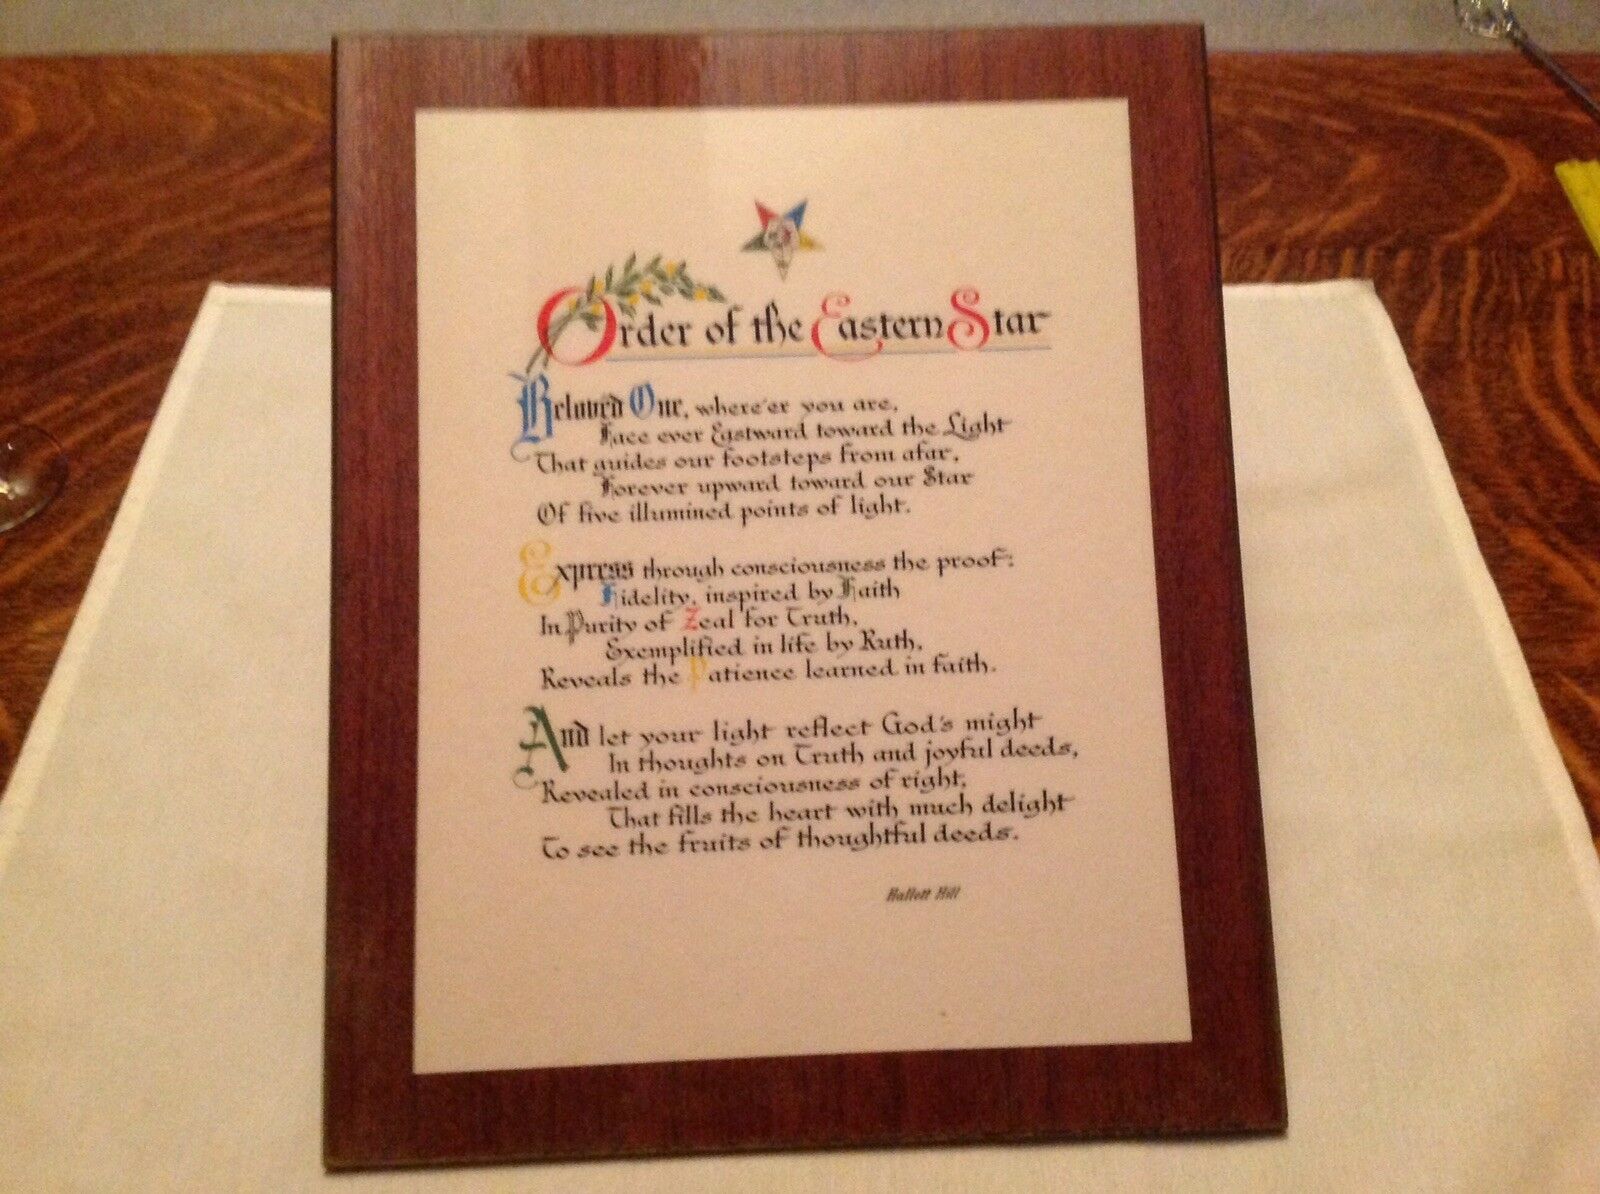 Order of the Eastern Star
Beloved One, where'er you are,
Face ever Eastward toward the Light
That guides our footsteps from afar,
Forever upward toward our Star
Of five illumined points of light.
Express through consciousness the proof:
Fidelity, inspired by Faith
In Purity of Zeal for Truth,
Exemplified in life by Ruth,
Reveals the Patience learned in faith.
And let your light reflect God's might
In thoughts on Truth and joyful deeds,
Revealed in consciousness of right,
That fills the heart with much delight
To see the fruits of thoughtful deeds.
Hallett Hill